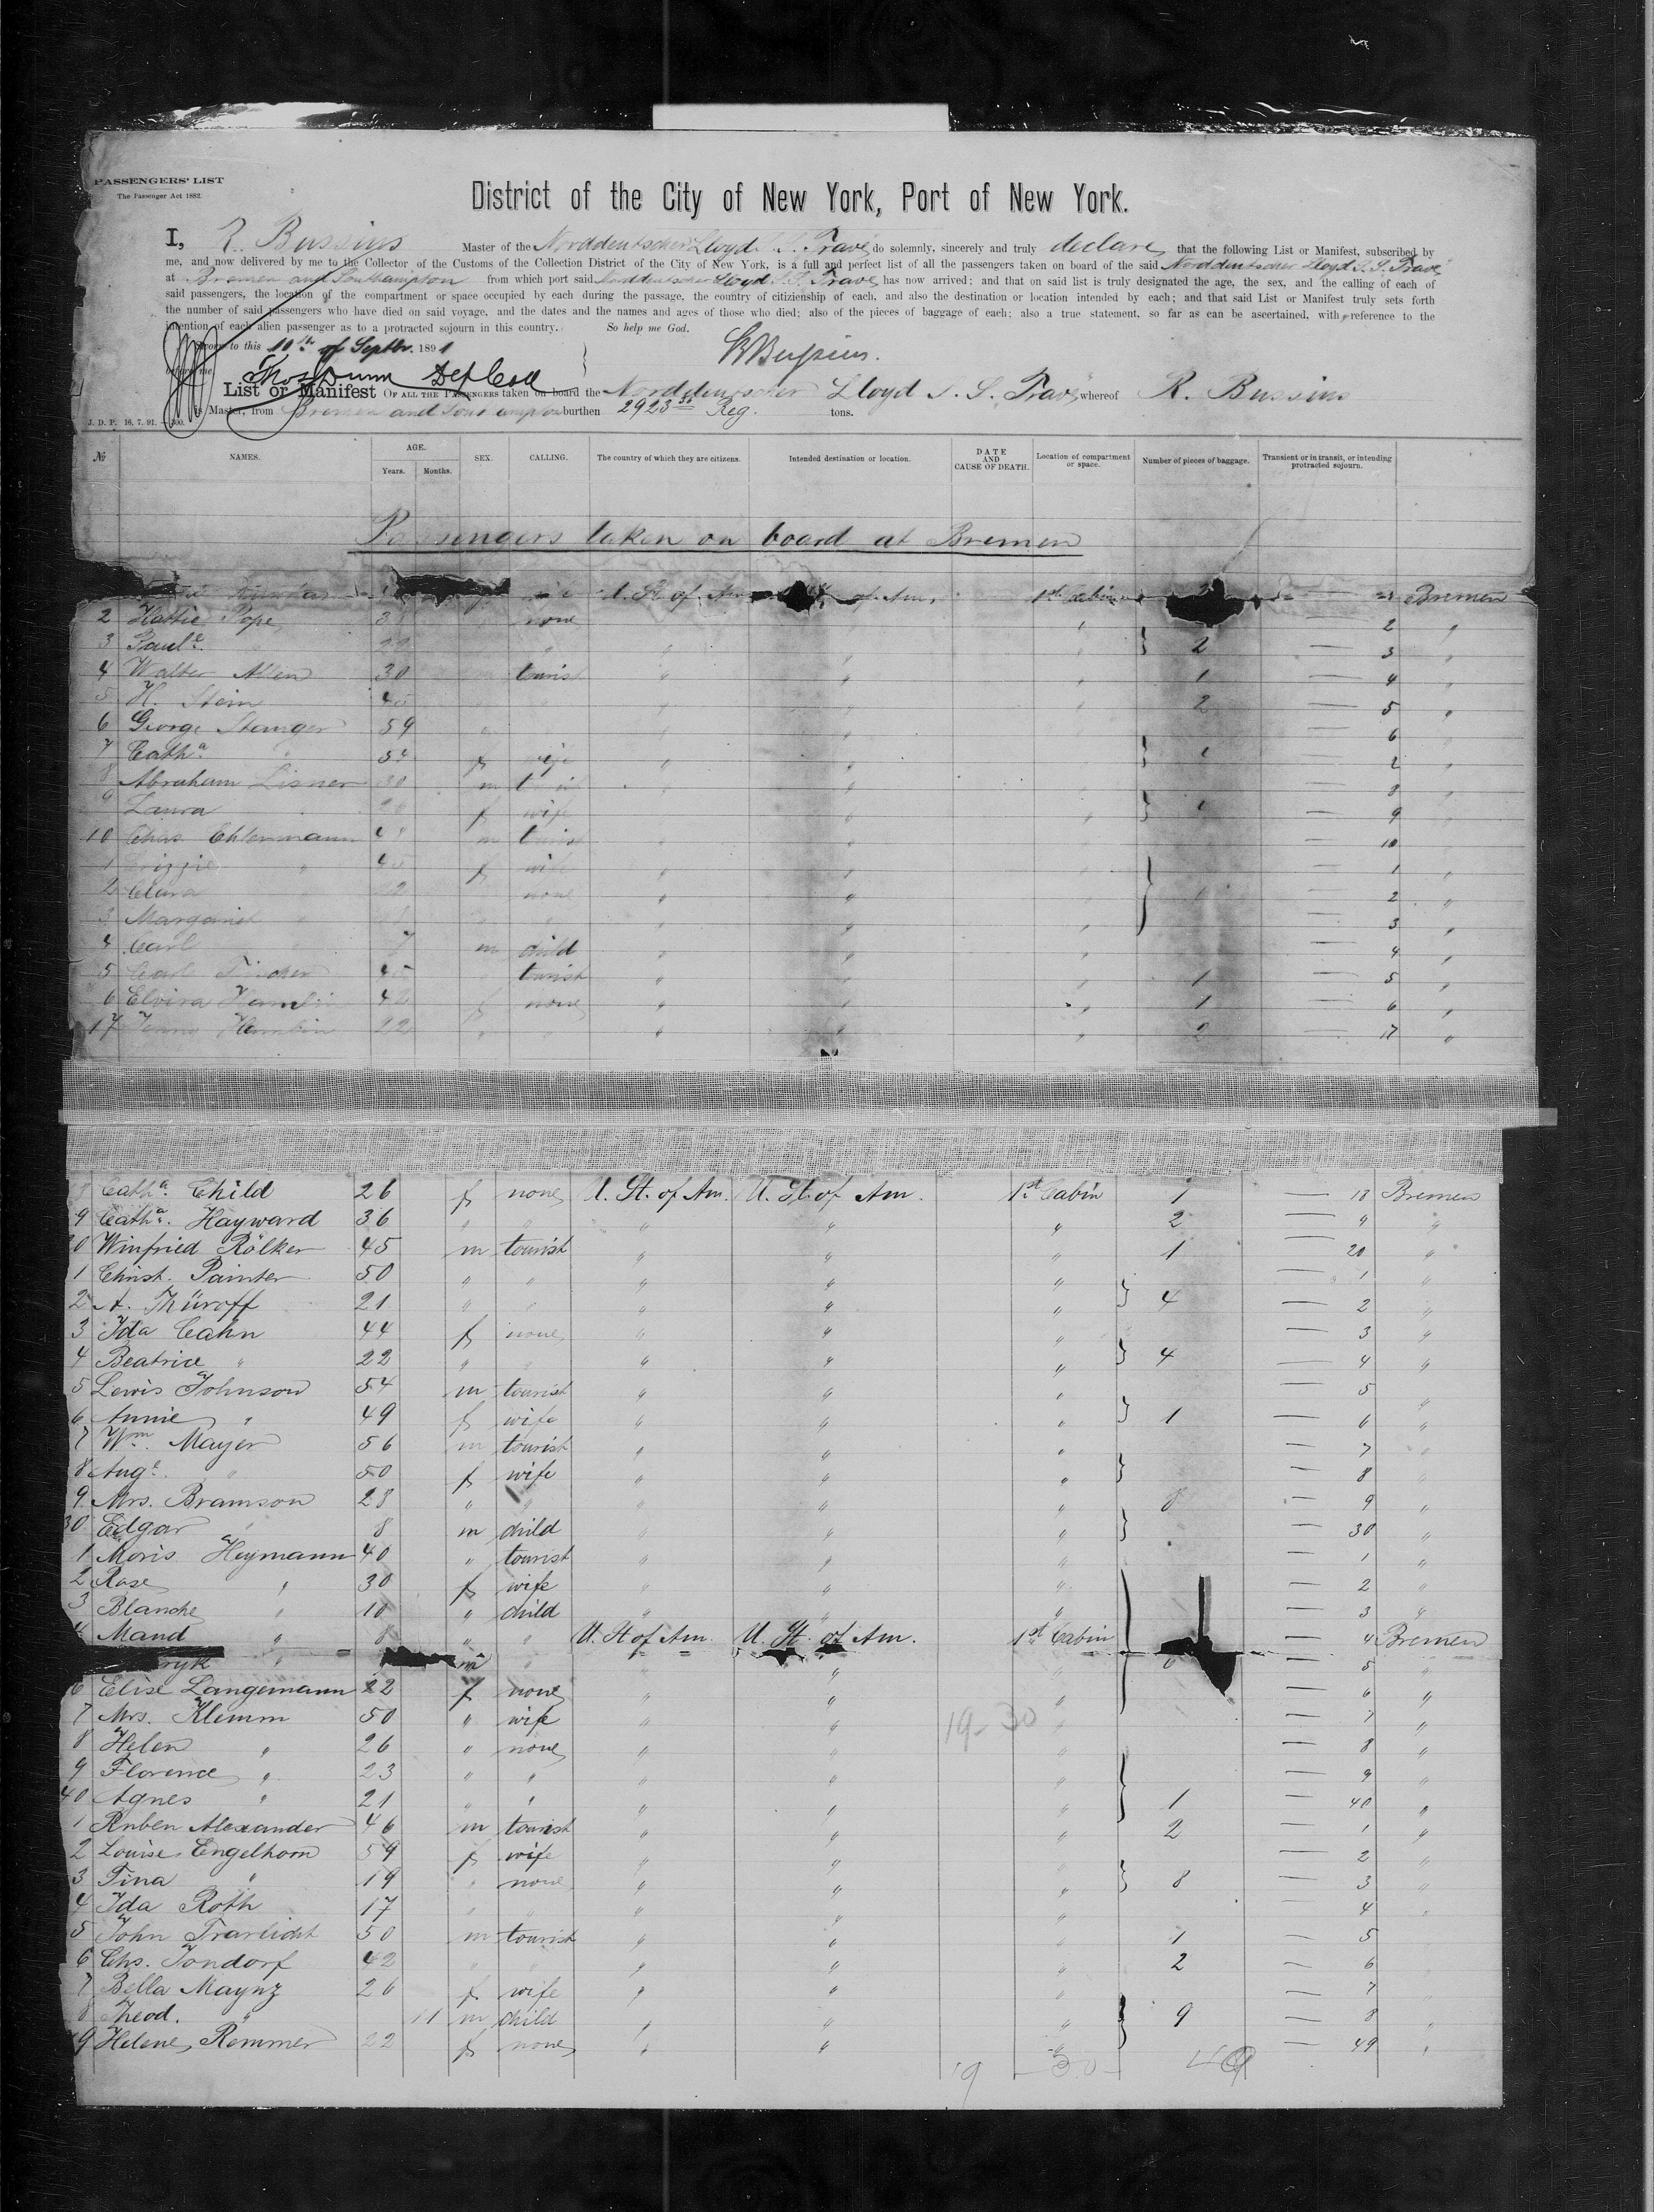 PASSENGERS' LIST
The Passenger Act 1882.
District of the City of New York, Port of New York.
I, R. Bussius Master of the Norddeutscher Lloyd S. S. "Trave" do solemnly, sincerely and truly declare that the following List or Manifest, subscribed by
me, and now delivered by me to the Collector of the Customs of the Collection District of the City of New York, is a full and perfect list of all the passengers taken on board of the said Norddeutscher Lloyd S. S. "Trave"
at Bremen and Southampton from which port said Norddeutscher Lloyd S. S. "Trave" has now arrived; and that on said list is truly designated the age, the sex, and the calling of each of
said passengers, the location of the compartment or space occupied by each during the passage, the country of citizienship of each, and also the destination or location intended by each; and that said List or Manifest truly sets forth
the number of said passengers who have died on said voyage, and the dates and the names and ages of those who died; also of the pieces of baggage of each; also a true statement, so far as can be ascertained, with reference to the
intention of each alien passenger as to a protracted sojourn in this country. So help me God.
Sworn to this 10th of Septbr. 1891 RBussius.
before me
Thos Dunn Dep Coll
List or Manifest OF ALL THE PASSENGERS taken on board the Norddeutscher Lloyd S. S. "Trave" whereof R. Bussius
is Master, from Bremen and Southampton burthen 2923 Reg. tons.
J. D. P. 16. 7. 91.
№ NAMES. AGE. Years. Months. SEX. CALLING. The country of which they are citizens. Intended destination or location. DATE AND CAUSE OF DEATH. Location of compartment or space. Number of pieces of baggage. Transient or in transit, or intending protracted sojourn.
Passengers taken on board at Bremen
U. St. of Am. of Am. 1st Cabin Bremen
2 Hattie Pope none " 2 "
3 Paule " " " } 2 — 3 "
4 Walter Allen 30 m tourist " " " 1 — 4 "
5 H. Stein " " " 2 — 5 "
6 George Stenger 59 " — 6
7 Catha " f wife " " } — "
8 Abraham Lisner 30 m " " — 8 "
9 Laura f wife " " } — 9
10 Chas. Ehlermann m tourist " " — 10
1 " f wife " " — 1 "
2 Clara none " " } — 2 "
3 Margaret " " " — 3 "
4 Carl 7 m child " " " — 4 "
5 Carl tourist " " " 1 — 5 "
6 Elvira 42 f none " " " 1 — 6 "
17 22 " " " " 2 — 17 "
8 Catha. Child 26 f none U. St. of Am. U. St. of Am. 1st Cabin 1 — 18 Bremen
9 Catha. Hayward 36 " " " " " 2 — 9 "
20 Winfried Rölker 45 m tourist " " " 1 — 20 "
1 Christ. Painter 50 " " " " " — 1 "
2 A. Thüroff 21 " " " " " } 4 — 2 "
3 Ida Cahn 44 f none " " " — 3 "
4 Beatrice " 22 " " " " " } 4 — 4 "
5 Lewis Johnson 54 m tourist " " " — 5 "
6 Annie " 49 f wife " " " } 1 — 6 "
7 Wm. Mayer 56 m tourist " " " — 7 "
8 Auge. " 50 f wife " " " } — 8 "
9 Mrs. Bramson 28 " " " " " 8 — 9 "
30 Edgar " 8 m child " " " } — 30 "
1 Moris Heymann 40 " tourist " " " — 1 "
2 Rose " 30 f wife " " " — 2 "
3 Blanche " 10 " child " " " — 3 "
4 Maud " 8 " " U. St of Am. U. St. of Am. 1st Cabin — 4 Bremen
" m " " " " — 5 "
6 Elise Langemann 22 f none " " " — 6 "
7 Mrs. Klemm 50 " wife " " 19-30 " — 7 "
8 Helen " 26 " none " " " — 8 "
9 Florence " 23 " " " " " — 9 "
40 Agnes " 21 " " " " " } 1 — 40 "
1 Ruben Alexander 46 m tourist " " " 2 — 1 "
2 Louise Engelhorn 59 f wife " " " — 2 "
3 Tina " 19 " none " " " } 8 — 3 "
4 Ida Roth 17 " " " " " — 4 "
5 John 50 m tourist " " " 1 — 5
6 Chs. Jondorf 42 " " " " " 2 — 6
7 Bella Maynz 26 f wife " " " — 7
8 Theod. " 11 m child " " " } 9 — 8 "
49 Helene Remmer 22 f none " " " — 49 "
19 30 49